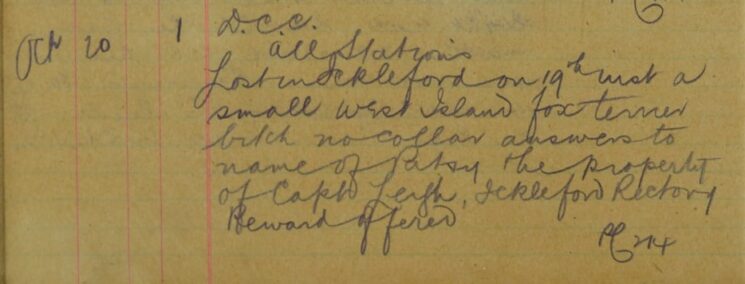 Oct 20 1 D.C.C.
All Stations
Lost in Ickleford on 19th inst a
small West Island fox terrier
bitch no collar answers to
name of Patsy the property
of Capt Leigh, Ickleford Rectory
Reward offered
PC 214